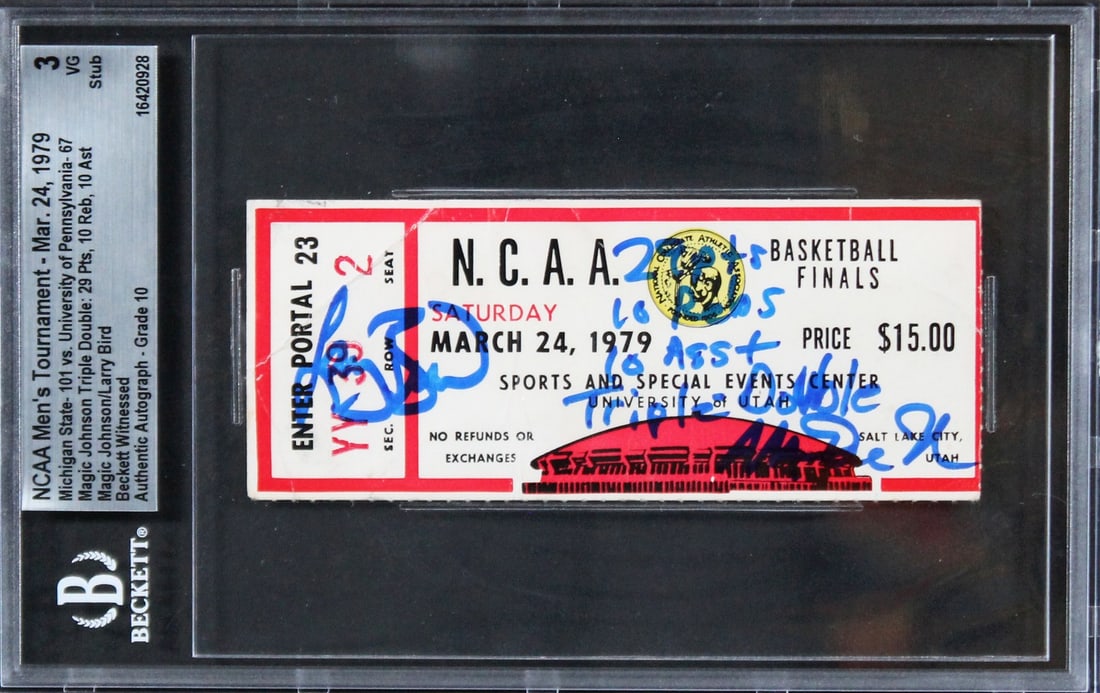 3
VG
Stub
16420928
NCAA Men's Tournament - Mar. 24, 1979
Michigan State- 101 vs. University of Pennsylvania- 67
Magic Johnson Triple Double: 29 Pts, 10 Reb, 10 Ast
Magic Johnson/Larry Bird
Beckett Witnessed
Authentic Autograph - Grade 10
B
BECKETT®
ENTER PORTAL 23
YY 39 2
SEC. ROW SEAT
N. C. A. A.
BASKETBALL
FINALS
SATURDAY
MARCH 24, 1979
PRICE $15.00
SPORTS AND SPECIAL EVENTS CENTER
UNIVERSITY of UTAH
NO REFUNDS OR
EXCHANGES
SALT LAKE CITY,
UTAH
Larry Bird
29 pts
10 Rebs
10 Asst
Triple Double